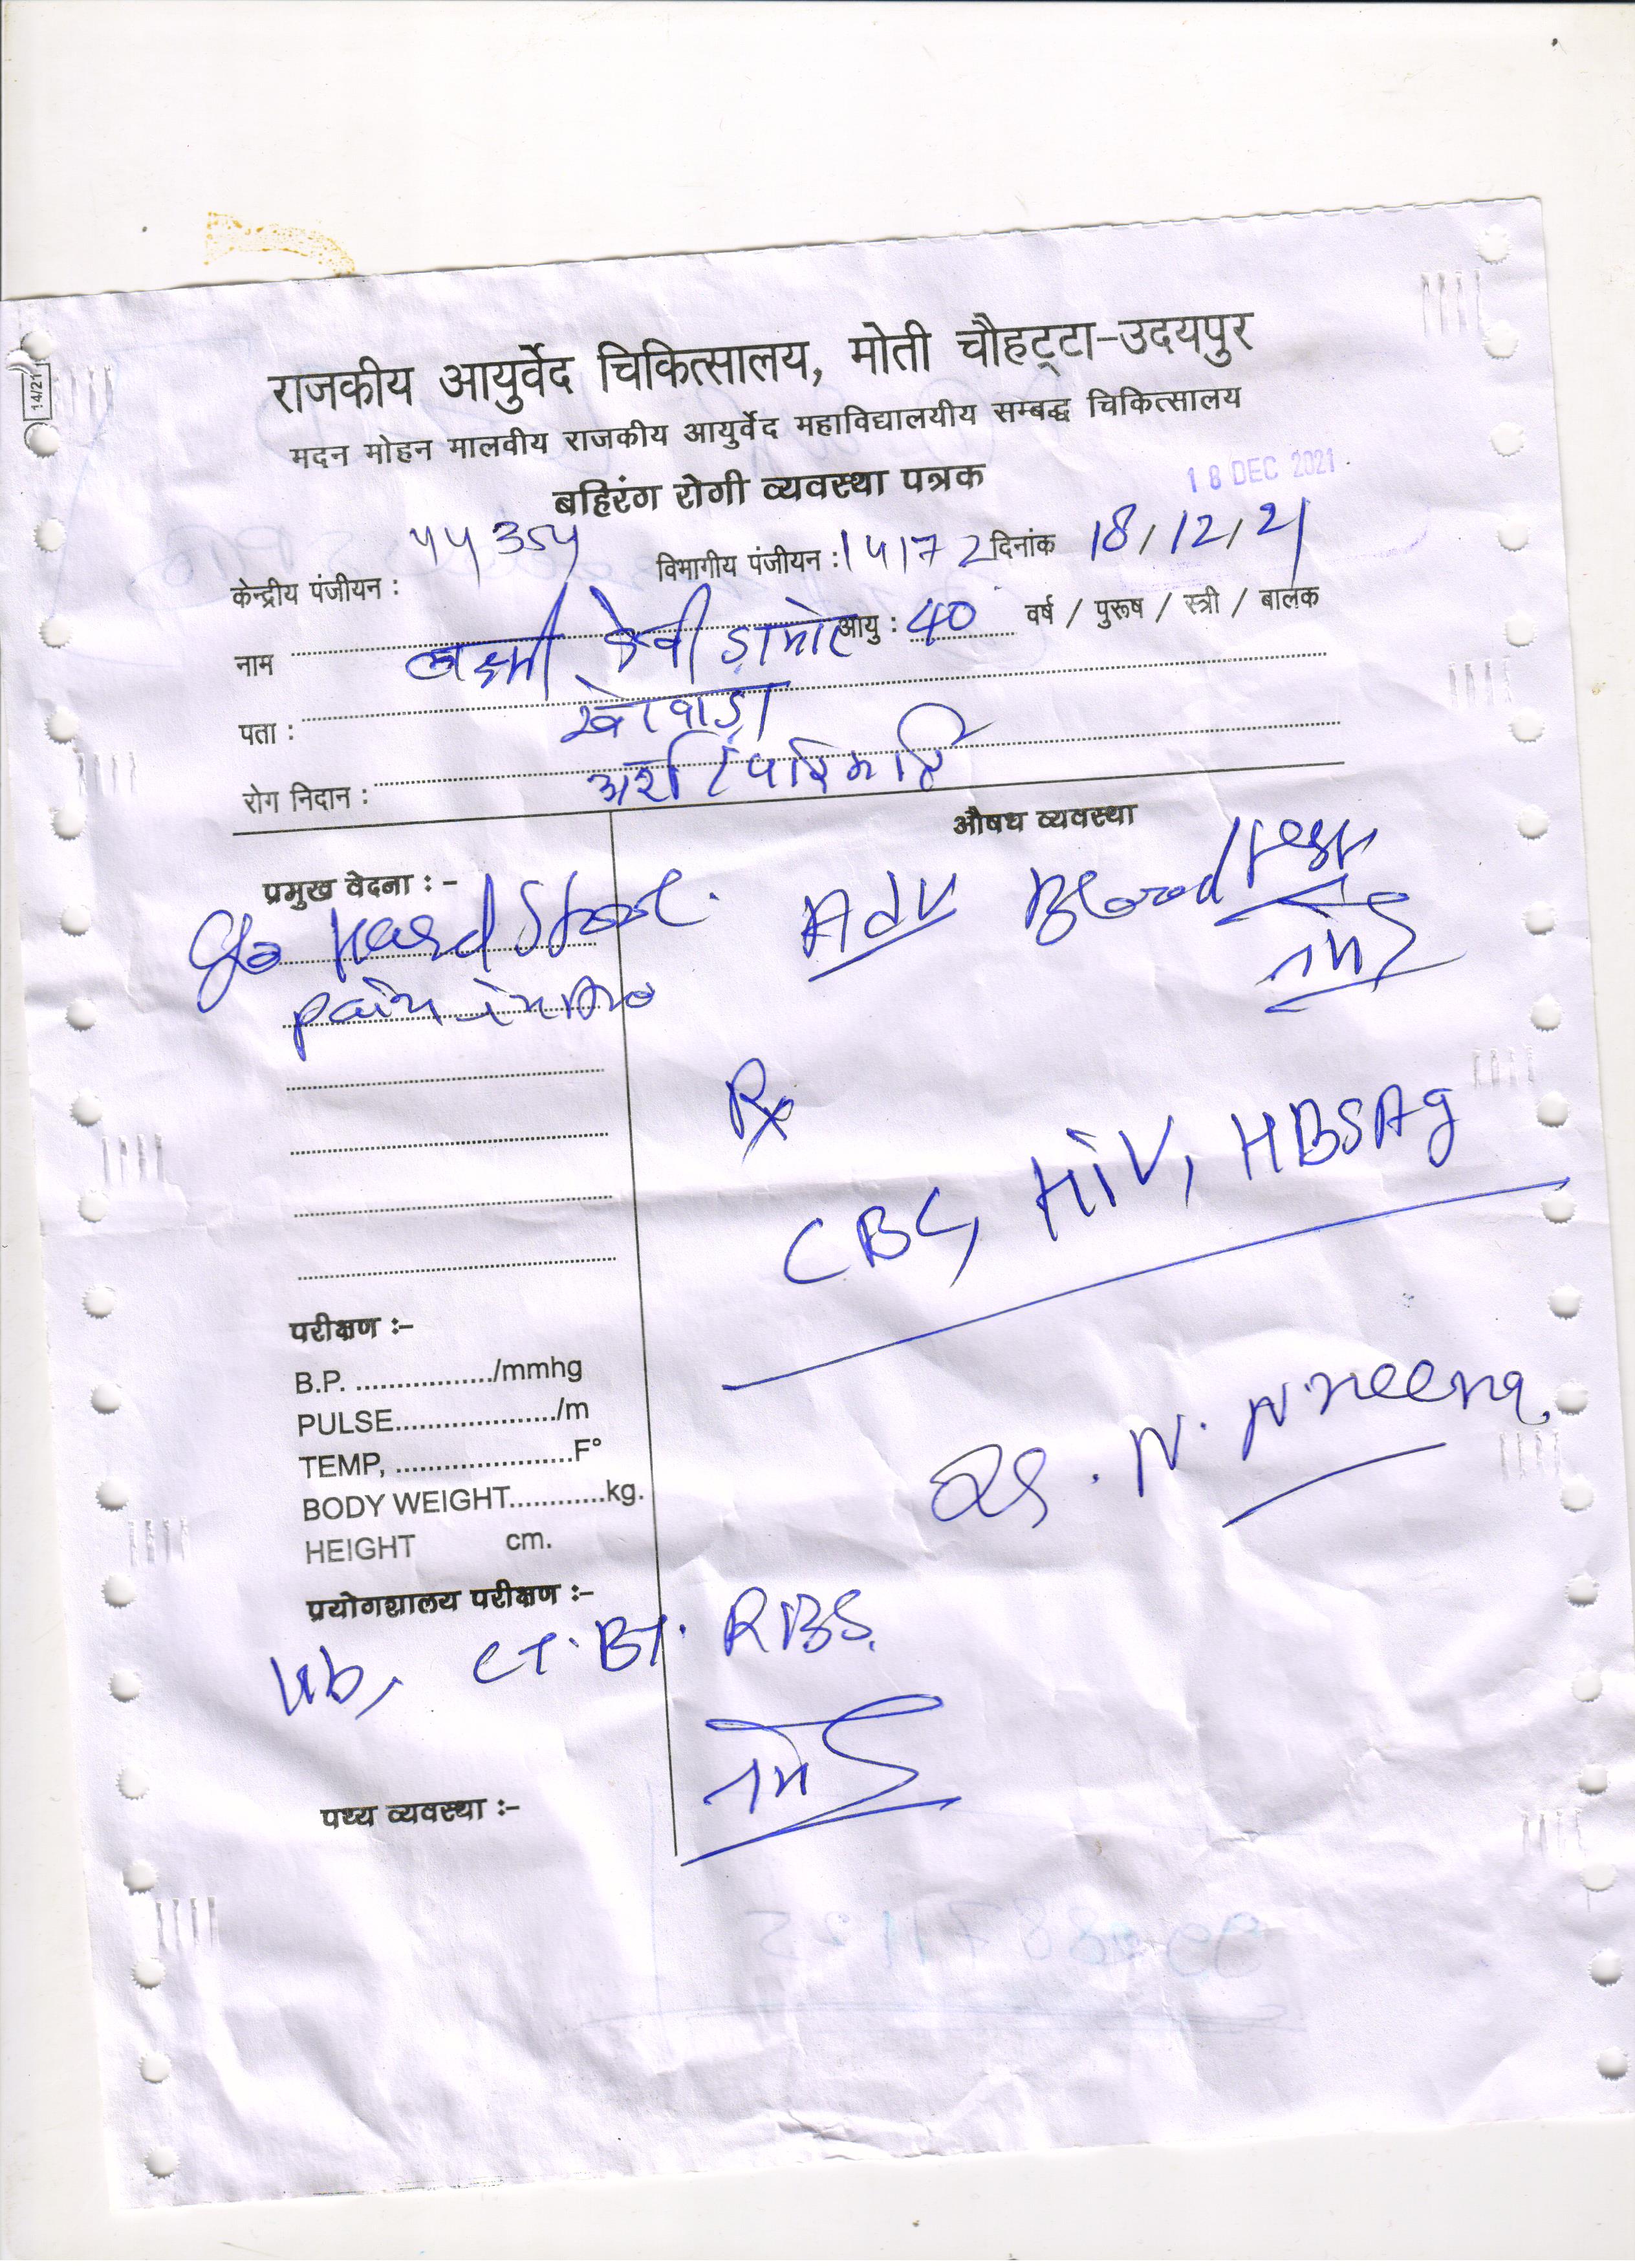 14/21
राजकीय आयुर्वेद चिकित्सालय, मोती चौहट्टा-उदयपुर
मदन मोहन मालवीय राजकीय आयुर्वेद महाविद्यालयीय सम्बद्ध चिकित्सालय
बहिरंग रोगी व्यवस्था पत्रक
18 DEC 2021
केन्द्रीय पंजीयन : विभागीय पंजीयन : दिनांक 18/12/21
नाम लक्ष्मी देवी डामोर आयु : 40 वर्ष / पुरूष / स्त्री / बालक
पता :
रोग निदान :
औषध व्यवस्था
प्रमुख वेदना : -
Adv Blood test
C/o Hard Stool.
pain in Ano
Rx
CBC, HiV, HBSAg
परीक्षण :-
B.P. ................./mmhg
PULSE..................../m
TEMP, ......................F°
BODY WEIGHT............kg.
HEIGHT cm.
Dr. N. N. Meena
प्रयोगशालय परीक्षण :-
Hb, CT. BT. RBS.
पथ्य व्यवस्था :-